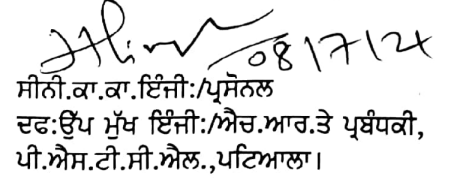 08/7/24
ਸੀਨੀ.ਕਾ.ਕਾ.ਇੰਜੀ:/ਪ੍ਰਸੋਨਲ
ਦਫ:ਉੱਪ ਮੁੱਖ ਇੰਜੀ:/ਐਚ.ਆਰ.ਤੇ ਪ੍ਰਬੰਧਕੀ,
ਪੀ.ਐਸ.ਟੀ.ਸੀ.ਐਲ.,ਪਟਿਆਲਾ।